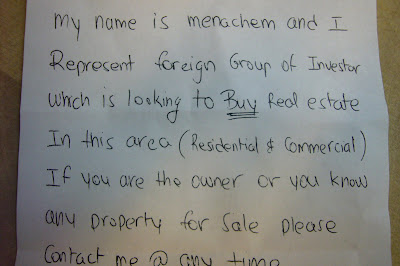 my name is menachem and I
Represent foreign Group of Investor
which is looking to Buy Real estate
In this area (Residential & Commercial)
If you are the owner or you know
any property for sale please
Contact me @ any time